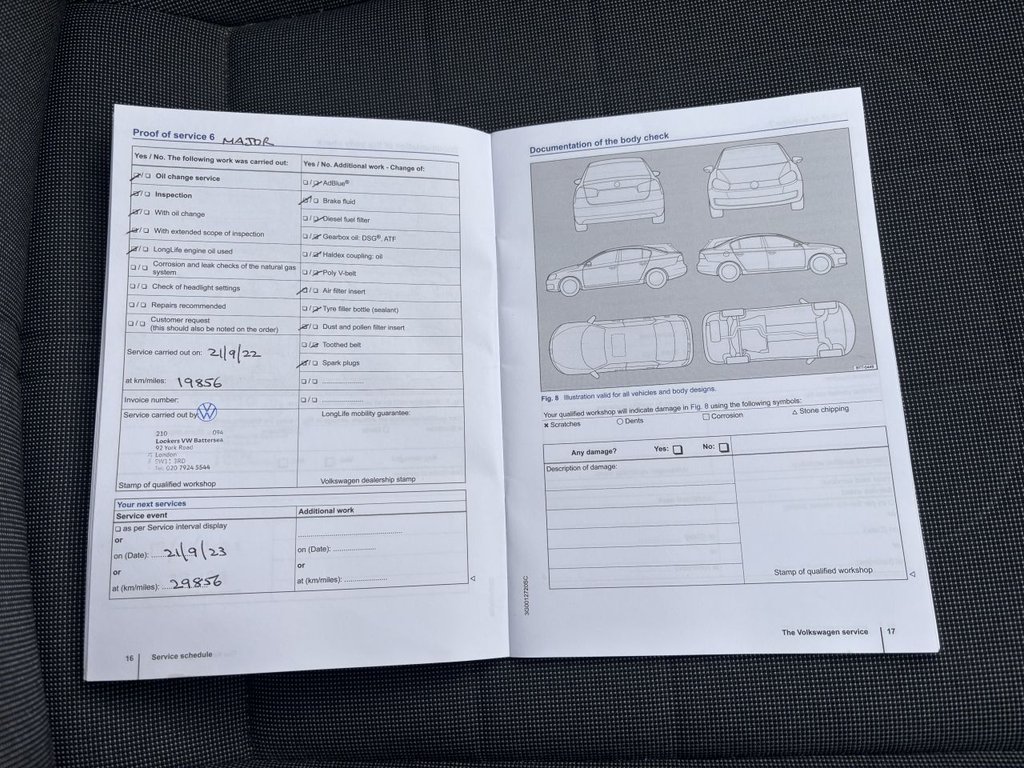 Proof of service 6 MAJOR
Yes / No. The following work was carried out:
Oil change service
Inspection
With oil change
With extended scope of inspection
LongLife engine oil used
Corrosion and leak checks of the natural gas
system
Check of headlight settings
Repairs recommended
Customer request
(this should also be noted on the order)
Service carried out on: 21/9/22
at km/miles: 19856
Invoice number:
Service carried out by
210 094
Lookers VW Battersea
92 York Road
London
SW11 3RD
Tel: 020 7924 5544
Stamp of qualified workshop
Yes / No. Additional work - Change of:
AdBlue®
Brake fluid
Diesel fuel filter
Gearbox oil: DSG®, ATF
Haldex coupling: oil
Poly V-belt
Air filter insert
Tyre filler bottle (sealant)
Dust and pollen filter insert
Toothed belt
Spark plugs
LongLife mobility guarantee:
Volkswagen dealership stamp
Your next services
Service event
as per Service interval display
or
on (Date): 21/9/23
or
at (km/miles): 29856
Additional work
on (Date):
or
at (km/miles):
16 Service schedule
Documentation of the body check
Fig. 8 Illustration valid for all vehicles and body designs.
Your qualified workshop will indicate damage in Fig. 8 using the following symbols:
× Scratches ○ Dents □ Corrosion △ Stone chipping
Any damage? Yes: No:
Description of damage:
Stamp of qualified workshop
3G0012720SC
The Volkswagen service 17